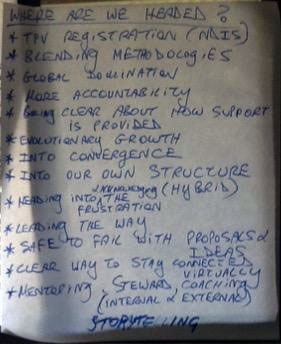 WHERE ARE WE HEADED?
* TPV REGISTRATION (NDIS)
* BLENDING METHODOLOGIES
* GLOBAL DOMINATION
* MORE ACCOUNTABILITY
* BEING CLEAR ABOUT HOW SUPPORT
IS PROVIDED
* EVOLUTIONARY GROWTH
* INTO CONVERGENCE
* INTO OUR OWN STRUCTURE
(HYBRID)
* HEADING INTO THE
FRUSTRATION
* LEADING THE WAY
* SAFE TO FAIL WITH PROPOSALS &
IDEAS
* CLEAR WAY TO STAY CONNECTED
VIRTUALLY
* MENTORING, STEWARD, COACHING
(INTERNAL & EXTERNAL)
STORYTELLING